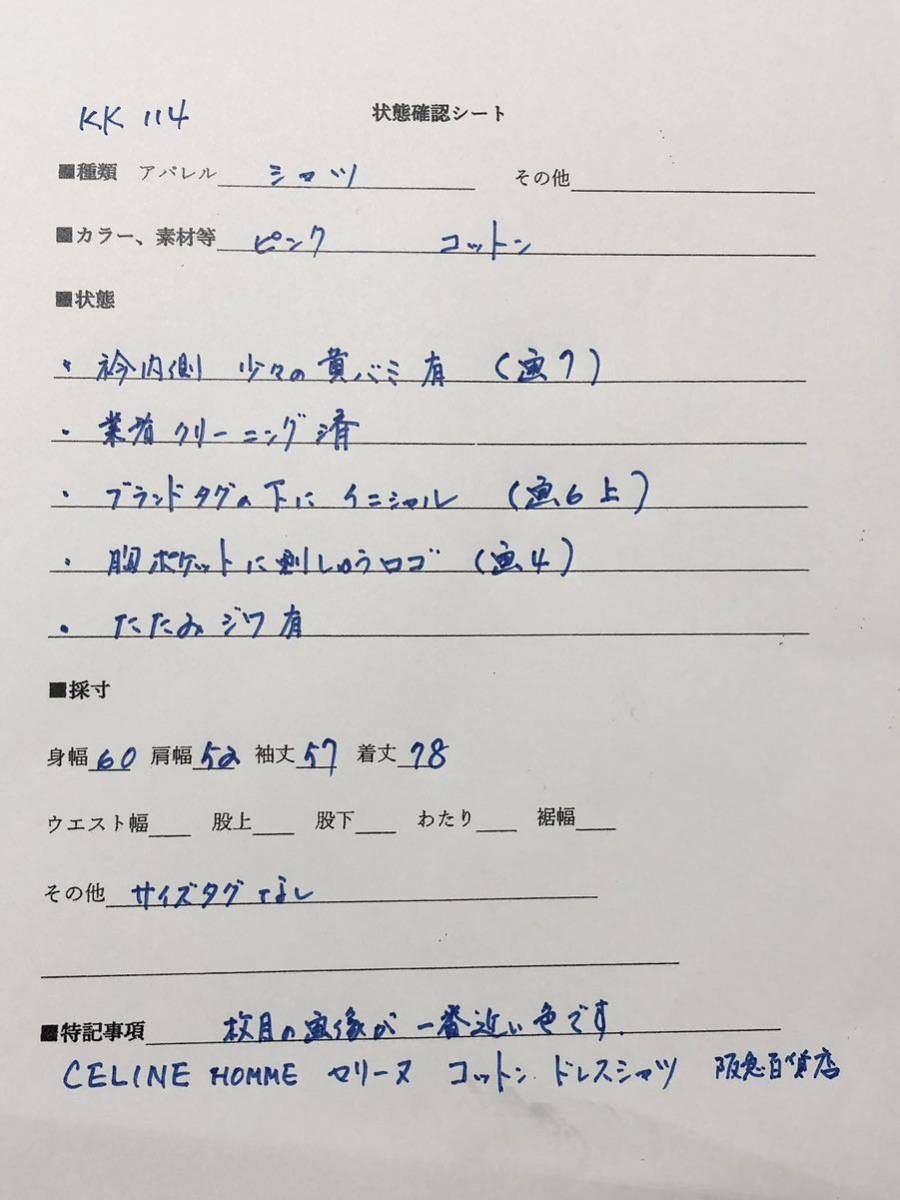 KK 114 状態確認シート
■種類 アパレル シャツ その他
■カラー、素材等 ピンク コットン
■状態
・衿内側 少々の黄バミ有 (画7)
・業者クリーニング済
・ブランドタグの下にイニシャル (画6上)
・胸ポケットに刺しゅうロゴ (画4)
・たたみジワ有
■採寸
身幅60 肩幅52 袖丈57 着丈78
ウエスト幅 股上 股下 わたり 裾幅
その他 サイズタグなし
■特記事項 枚目の画像が一番近い色です.
CELINE HOMME セリーヌ コットン ドレスシャツ 阪急百貨店